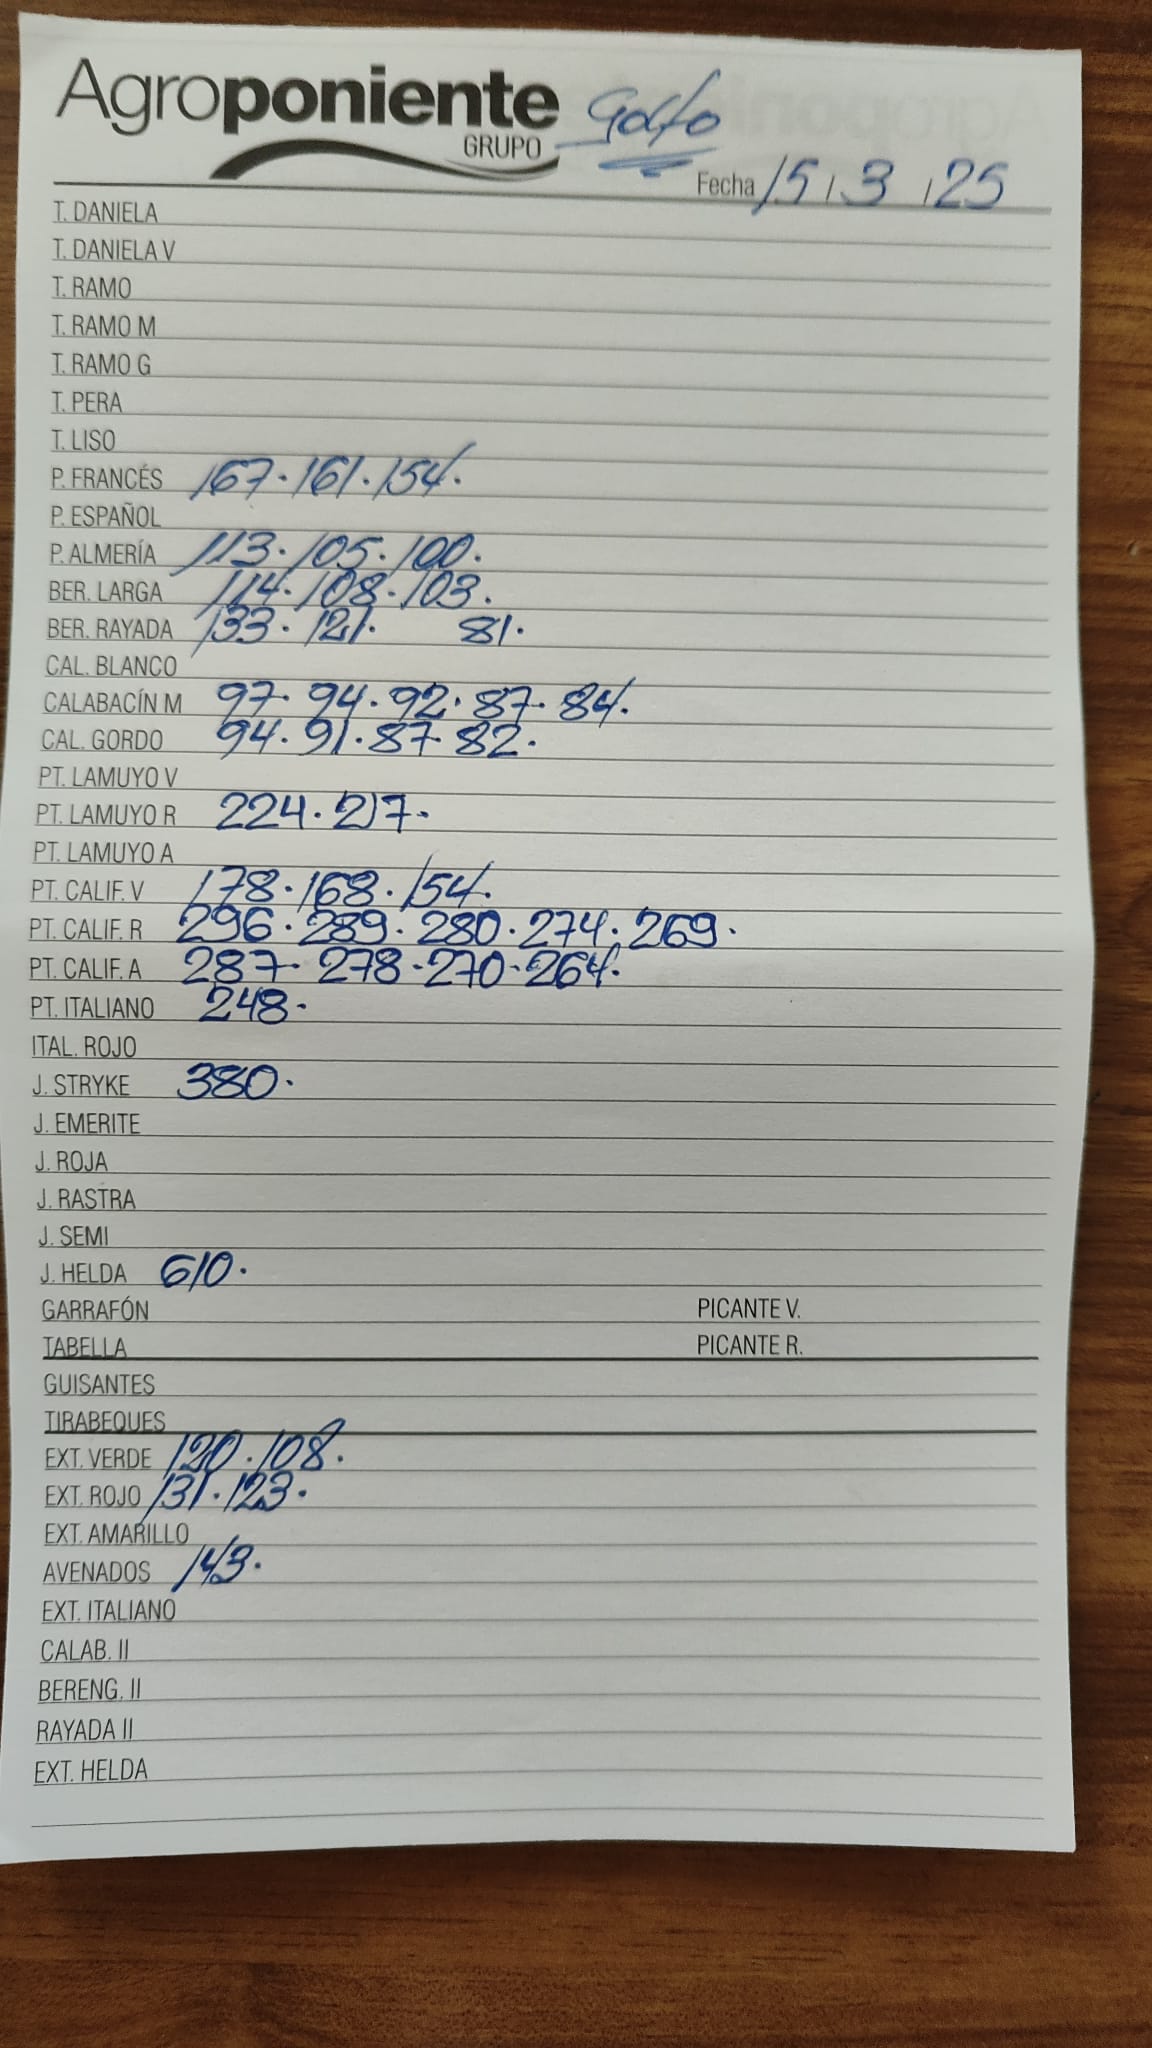 Agroponiente Golfo
GRUPO
Fecha 15/3/25
T. DANIELA
T. DANIELA V
T. RAMO
T. RAMO M
T. RAMO G
T. PERA
T. LISO
P. FRANCÉS 167. 161. 154.
P. ESPAÑOL
P. ALMERÍA 113. 105. 100.
BER. LARGA 114. 108. 103.
BER. RAYADA 133. 121. 81.
CAL. BLANCO
CALABACÍN M 97. 94. 92. 87. 84.
CAL. GORDO 94. 91. 87. 82.
PT. LAMUYO V
PT. LAMUYO R 224. 217.
PT. LAMUYO A
PT. CALIF. V 178. 168. 154.
PT. CALIF. R 296. 289. 280. 274. 269.
PT. CALIF. A 287. 278. 270. 264.
PT. ITALIANO 248.
ITAL. ROJO
J. STRYKE 380.
J. EMERITE
J. ROJA
J. RASTRA
J. SEMI
J. HELDA 610.
GARRAFÓN PICANTE V.
TABELLA PICANTE R.
GUISANTES
TIRABEQUES
EXT. VERDE 120. 108.
EXT. ROJO 131. 123.
EXT. AMARILLO
AVENADOS 143.
EXT. ITALIANO
CALAB. II
BERENG. II
RAYADA II
EXT. HELDA